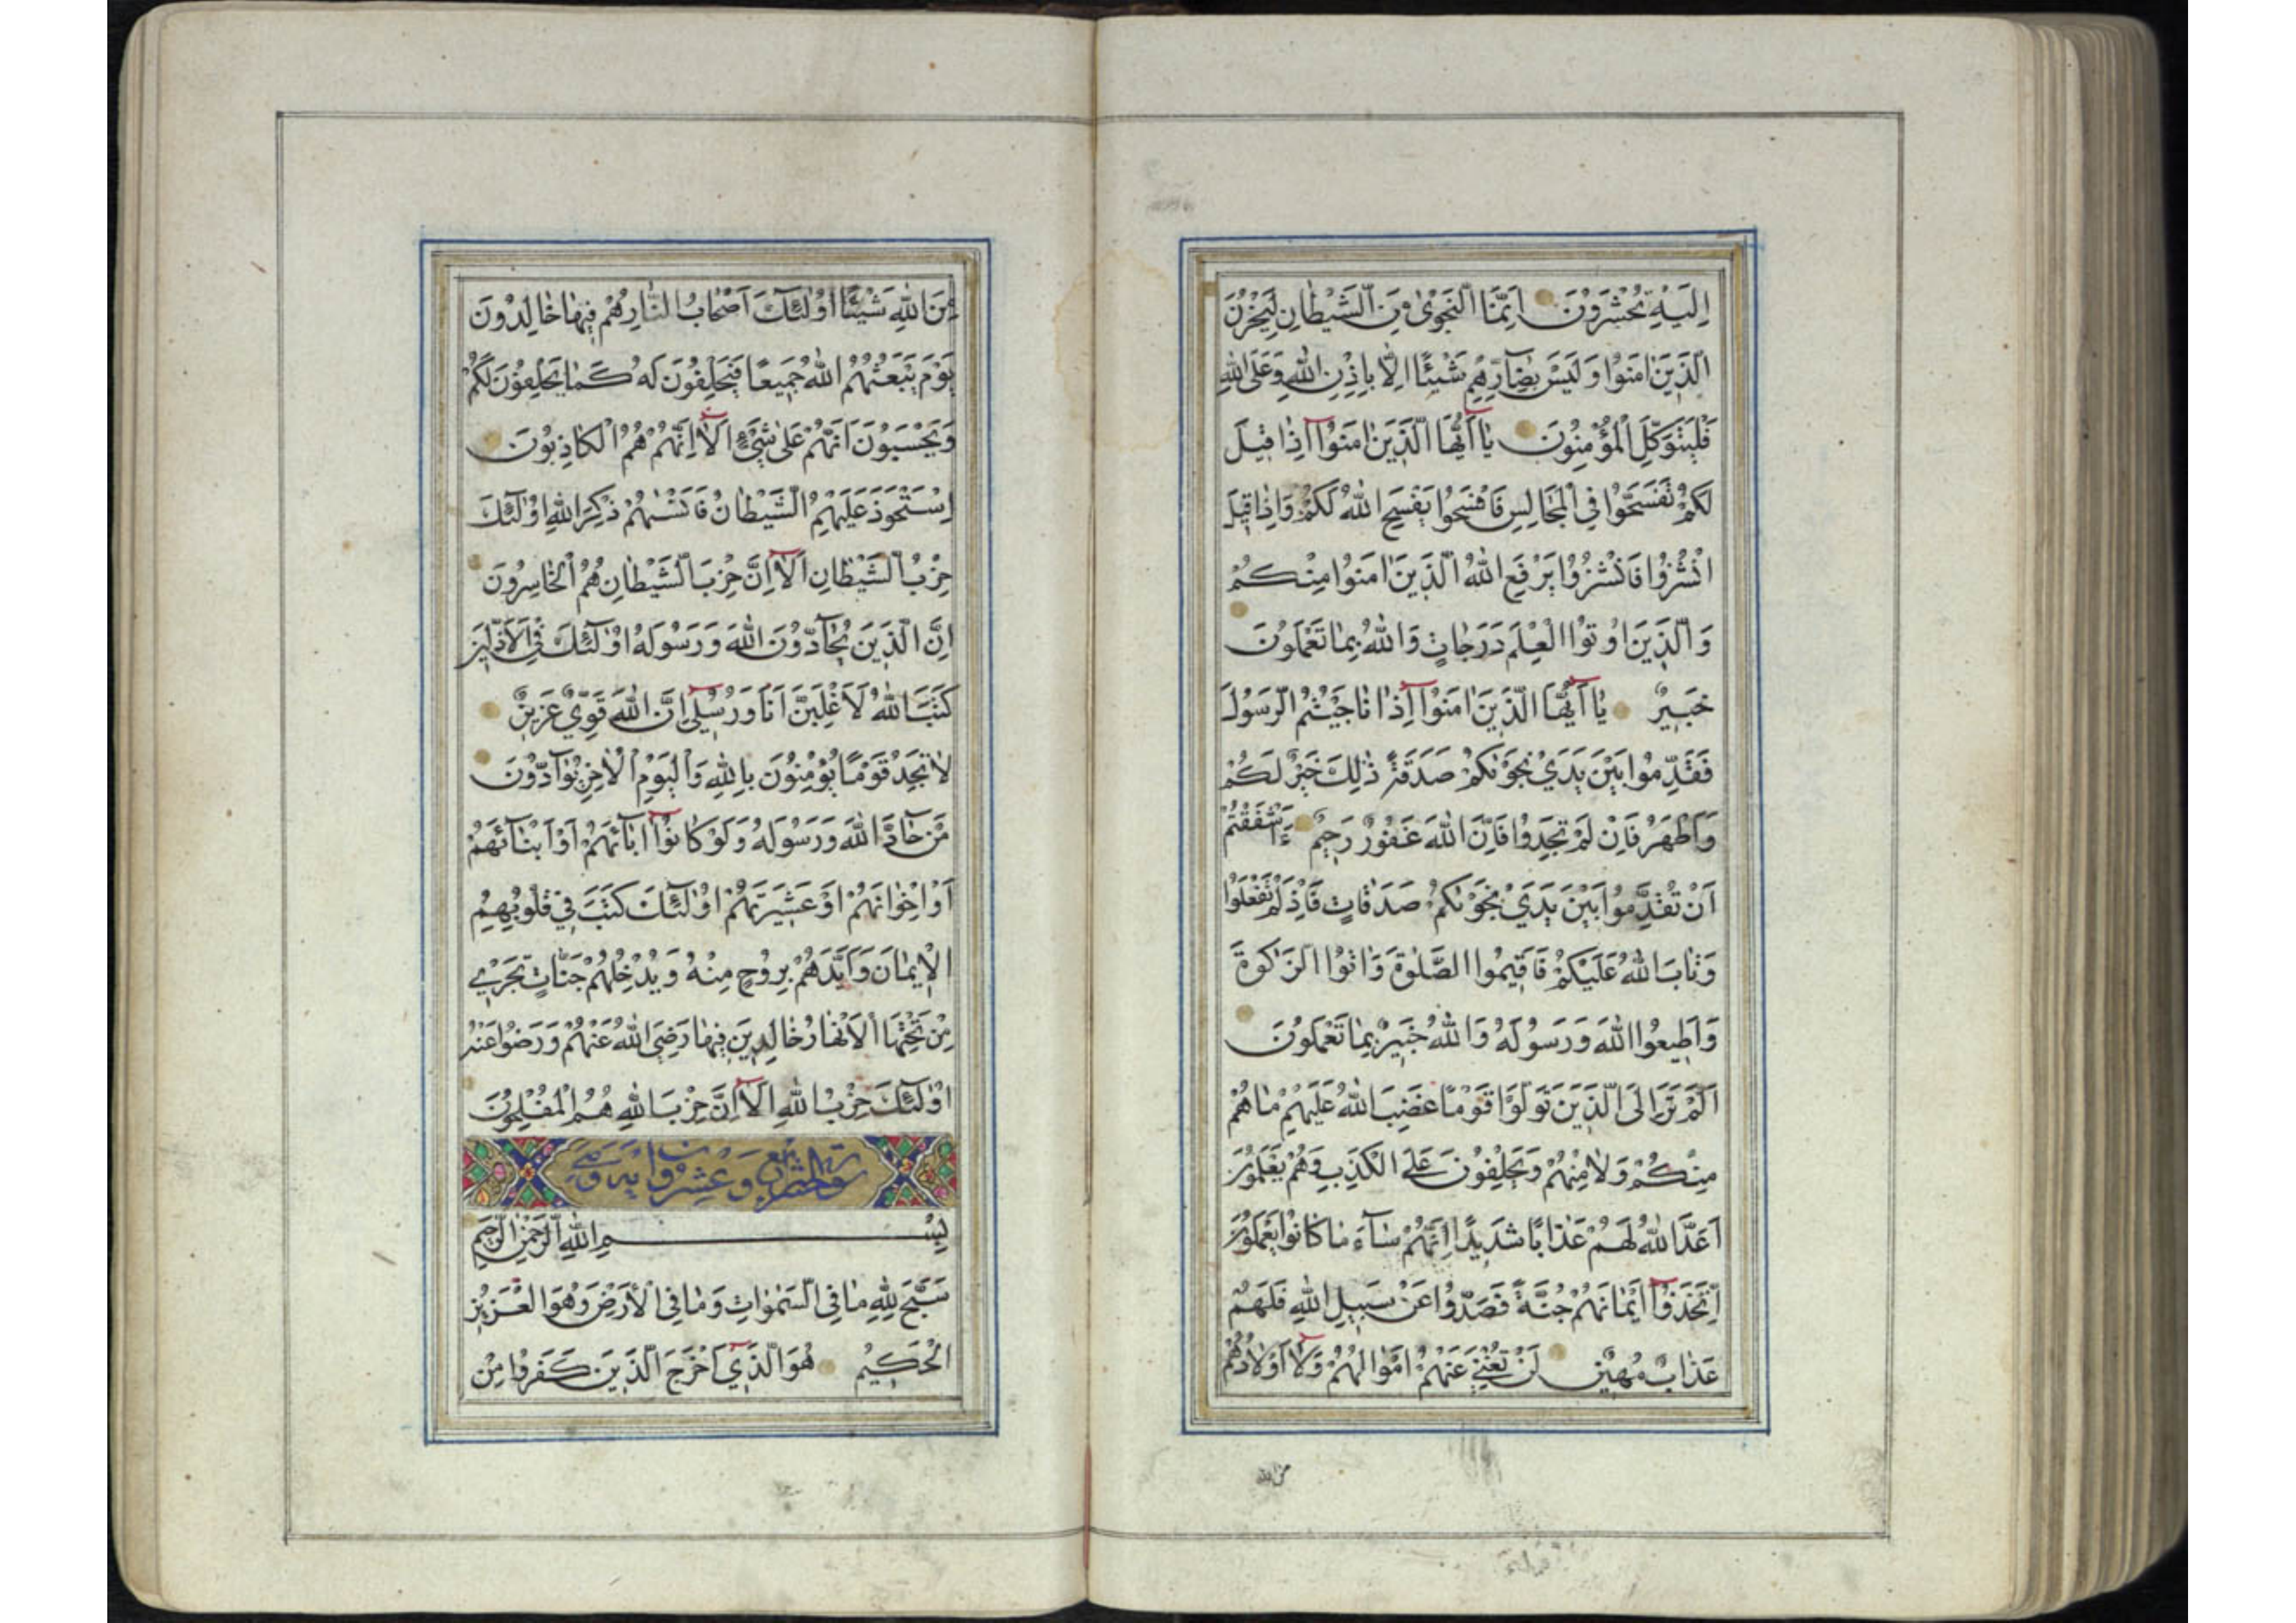 اِلَيْهِ تُحْشَرُونَ اِنَّمَا النَّجْوٰى مِنَ الشَّيْطَانِ لِيَحْزُنَ
الَّذِينَ اٰمَنُوا وَلَيْسَ بِضَآرِّهِمْ شَيْئًا اِلَّا بِاِذْنِ اللّٰهِ وَعَلَى اللّٰهِ
فَلْيَتَوَكَّلِ الْمُؤْمِنُونَ يَا اَيُّهَا الَّذِينَ اٰمَنُوا اِذَا قِيلَ
لَكُمْ تَفَسَّحُوا فِي الْمَجَالِسِ فَافْسَحُوا يَفْسَحِ اللّٰهُ لَكُمْ وَاِذَا قِيلَ
انْشُزُوا فَانْشُزُوا يَرْفَعِ اللّٰهُ الَّذِينَ اٰمَنُوا مِنْكُمْ
وَالَّذِينَ اُوتُوا الْعِلْمَ دَرَجَاتٍ وَاللّٰهُ بِمَا تَعْمَلُونَ
خَبِيرٌ يَا اَيُّهَا الَّذِينَ اٰمَنُوا اِذَا نَاجَيْتُمُ الرَّسُولَ
فَقَدِّمُوا بَيْنَ يَدَيْ نَجْوٰىكُمْ صَدَقَةً ذٰلِكَ خَيْرٌ لَكُمْ
وَاَطْهَرُ فَاِنْ لَمْ تَجِدُوا فَاِنَّ اللّٰهَ غَفُورٌ رَحِيمٌ ءَاَشْفَقْتُمْ
اَنْ تُقَدِّمُوا بَيْنَ يَدَيْ نَجْوٰىكُمْ صَدَقَاتٍ فَاِذْ لَمْ تَفْعَلُوا
وَتَابَ اللّٰهُ عَلَيْكُمْ فَاَقِيمُوا الصَّلٰوةَ وَاٰتُوا الزَّكٰوةَ
وَاَطِيعُوا اللّٰهَ وَرَسُولَهُ وَاللّٰهُ خَبِيرٌ بِمَا تَعْمَلُونَ
اَلَمْ تَرَ اِلَى الَّذِينَ تَوَلَّوْا قَوْمًا غَضِبَ اللّٰهُ عَلَيْهِمْ مَا هُمْ
مِنْكُمْ وَلَا مِنْهُمْ وَيَحْلِفُونَ عَلَى الْكَذِبِ وَهُمْ يَعْلَمُونَ
اَعَدَّ اللّٰهُ لَهُمْ عَذَابًا شَدِيدًا اِنَّهُمْ سَآءَ مَا كَانُوا يَعْمَلُونَ
اِتَّخَذُوا اَيْمَانَهُمْ جُنَّةً فَصَدُّوا عَنْ سَبِيلِ اللّٰهِ فَلَهُمْ
عَذَابٌ مُهِينٌ لَنْ تُغْنِيَ عَنْهُمْ اَمْوَالُهُمْ وَلَا اَوْلَادُهُمْ
من الله
مِنَ اللّٰهِ شَيْئًا اُولٰئِكَ اَصْحَابُ النَّارِ هُمْ فِيهَا خَالِدُونَ
يَوْمَ يَبْعَثُهُمُ اللّٰهُ جَمِيعًا فَيَحْلِفُونَ لَهُ كَمَا يَحْلِفُونَ لَكُمْ
وَيَحْسَبُونَ اَنَّهُمْ عَلٰى شَيْءٍ اَلَا اِنَّهُمْ هُمُ الْكَاذِبُونَ
اِسْتَحْوَذَ عَلَيْهِمُ الشَّيْطَانُ فَاَنْسٰيهُمْ ذِكْرَ اللّٰهِ اُولٰئِكَ
حِزْبُ الشَّيْطَانِ اَلَا اِنَّ حِزْبَ الشَّيْطَانِ هُمُ الْخَاسِرُونَ
اِنَّ الَّذِينَ يُحَآدُّونَ اللّٰهَ وَرَسُولَهُ اُولٰئِكَ فِي الْاَذَلِّينَ
كَتَبَ اللّٰهُ لَاَغْلِبَنَّ اَنَا وَرُسُلِي اِنَّ اللّٰهَ قَوِيٌّ عَزِيزٌ
لَا تَجِدُ قَوْمًا يُؤْمِنُونَ بِاللّٰهِ وَالْيَوْمِ الْاٰخِرِ يُوَآدُّونَ
مَنْ حَآدَّ اللّٰهَ وَرَسُولَهُ وَلَوْ كَانُوا اٰبَآئَهُمْ اَوْ اَبْنَآئَهُمْ
اَوْ اِخْوَانَهُمْ اَوْ عَشِيرَتَهُمْ اُولٰئِكَ كَتَبَ فِي قُلُوبِهِمُ
الْاِيمَانَ وَاَيَّدَهُمْ بِرُوحٍ مِنْهُ وَيُدْخِلُهُمْ جَنَّاتٍ تَجْرِي
مِنْ تَحْتِهَا الْاَنْهَارُ خَالِدِينَ فِيهَا رَضِيَ اللّٰهُ عَنْهُمْ وَرَضُوا عَنْهُ
اُولٰئِكَ حِزْبُ اللّٰهِ اَلَا اِنَّ حِزْبَ اللّٰهِ هُمُ الْمُفْلِحُونَ
وَعِشْرُونَ
بِسْمِ اللّٰهِ الرَّحْمٰنِ الرَّحِيمِ
سَبَّحَ لِلّٰهِ مَا فِي السَّمٰوَاتِ وَمَا فِي الْاَرْضِ وَهُوَ الْعَزِيزُ
الْحَكِيمُ هُوَ الَّذِي اَخْرَجَ الَّذِينَ كَفَرُوا مِنْ